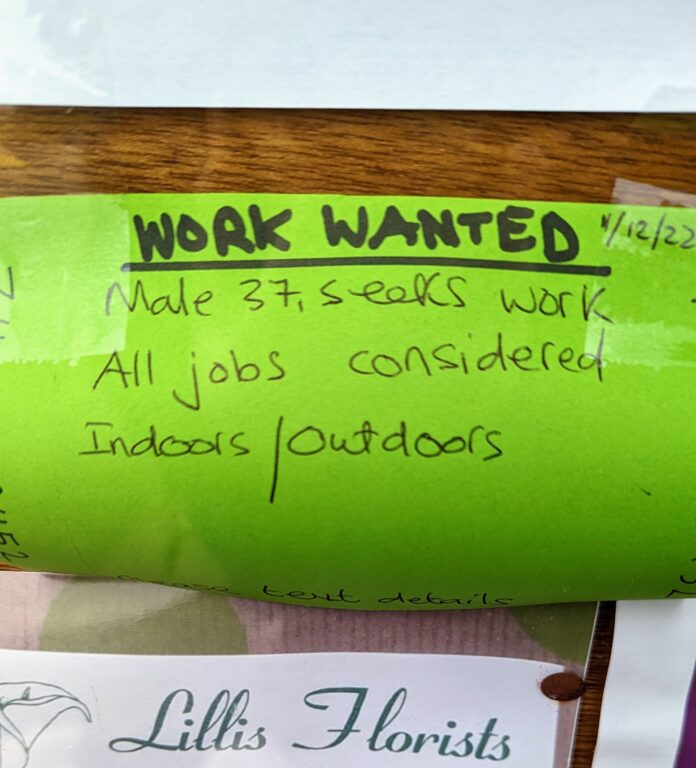 WORK WANTED 1/12/22
Male 37, seeks work
All jobs considered
Indoors/Outdoors
Please text details
Lillis Florists